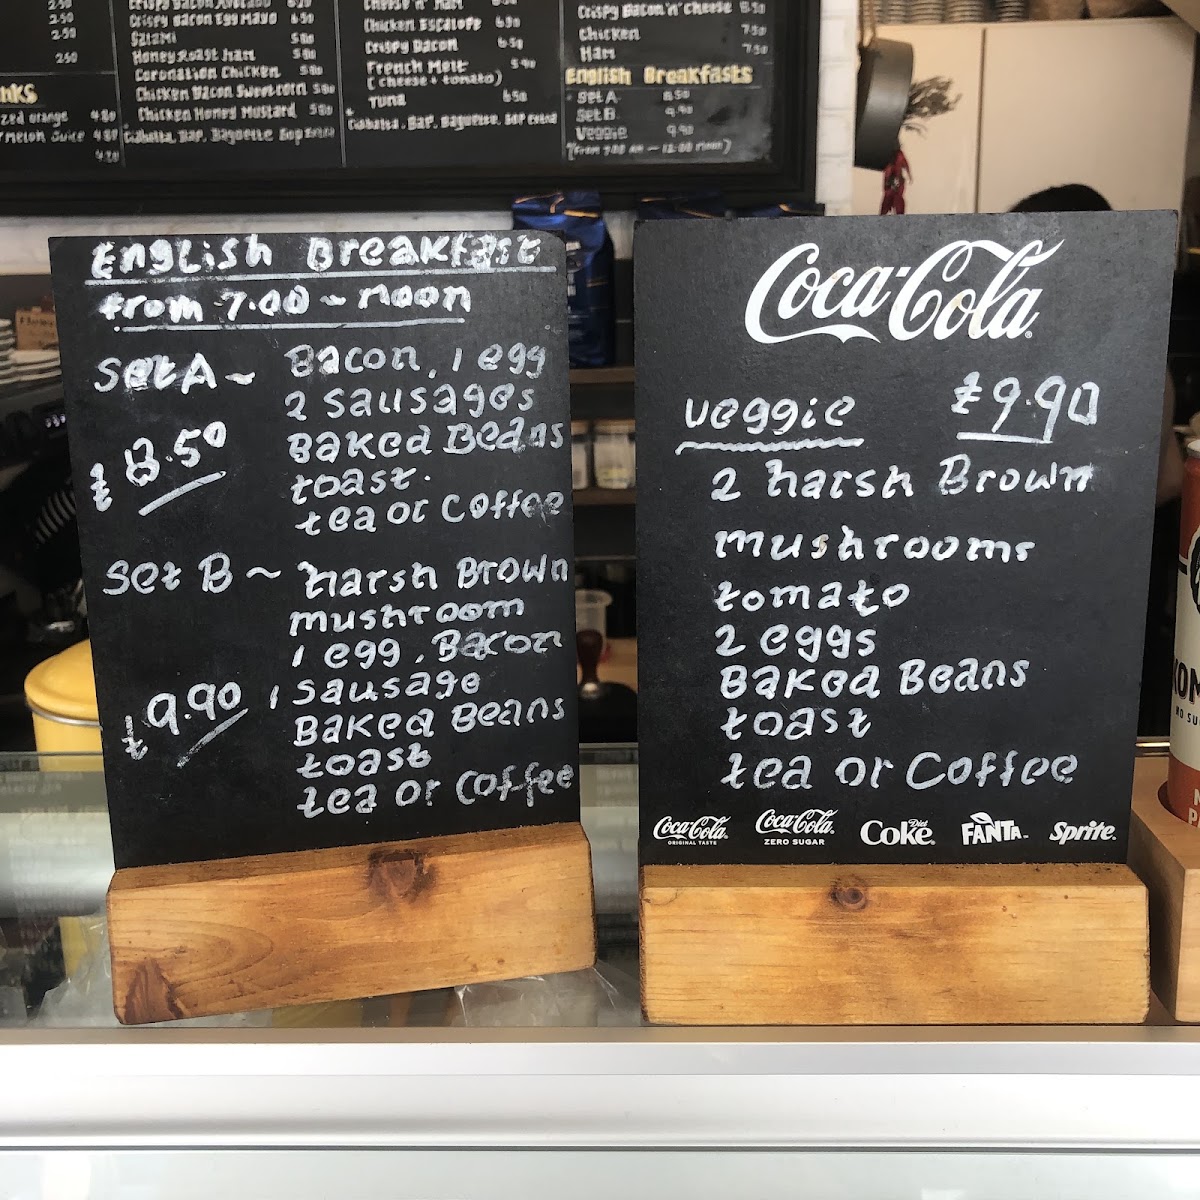 250
250
250
Crispy Bacon Avocado
Crispy Bacon Egg Mayo 6.50
Salami 5.90
Honey Roast Ham 5.90
Coronation Chicken 5.90
Chicken Bacon Sweetcorn 5.90
Chicken Honey Mustard 5.90
Ciabatta, Bap, Baguette 80p Extra
Cheese 'n' Ham
Chicken Escalope 6.90
Crispy Bacon 6.50
French Melt 5.90
(cheese + tomato)
Tuna 6.50
Ciabatta, Bap, Baguette, 80p extra
Crispy Bacon 'n' Cheese 8.50
Chicken 7.50
Ham 7.50
English Breakfasts
Set A 8.50
Set B 9.90
Veggie 9.90
(From 7.00 am - 12:00 noon)
English Breakfast
from 7.00 ~ noon
Set A ~ Bacon, 1 egg
2 sausages
£ 8.50 Baked Beans
toast.
tea or Coffee
Set B ~ harsh Brown
mushroom
1 egg, Bacon
£ 9.90 1 sausage
Baked Beans
toast
tea or coffee
Coca-Cola
veggie £9.90
2 harsh Brown
mushrooms
tomato
2 eggs
Baked Beans
toast
tea or Coffee
Coca-Cola ORIGINAL TASTE
Coca-Cola ZERO SUGAR
Diet Coke
FANTA
Sprite